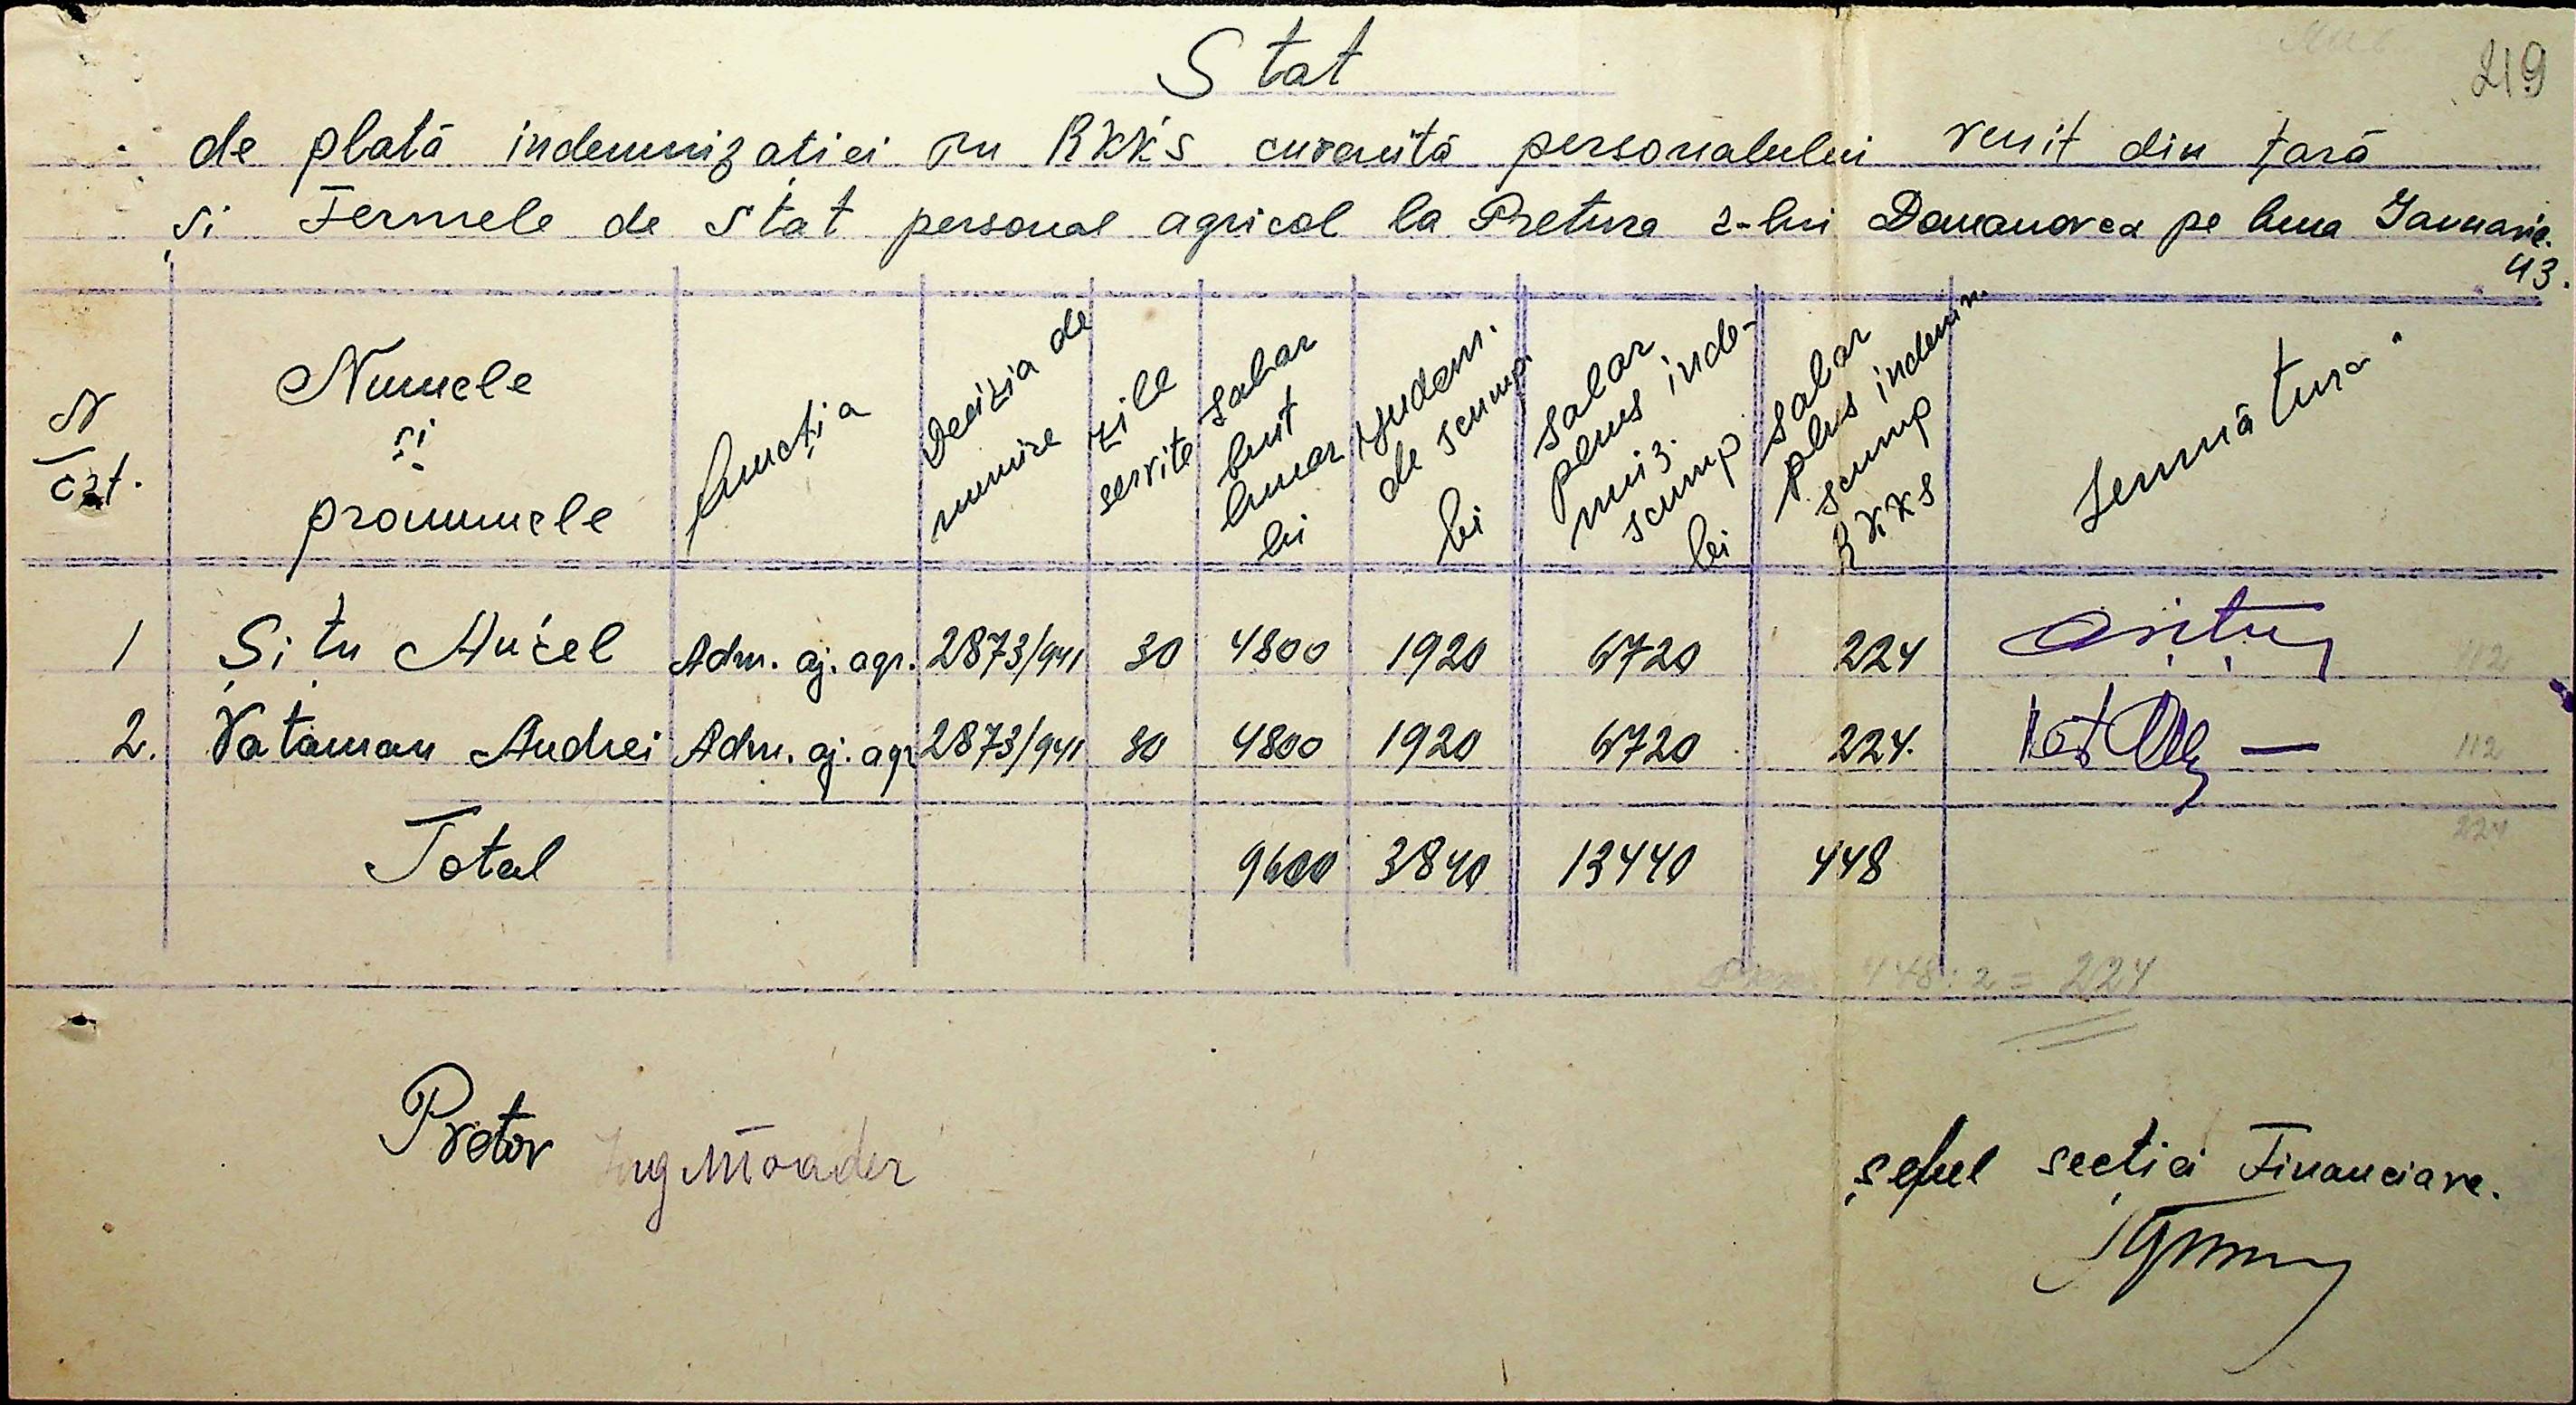 219
Stat
de plată indemnizației în RKKS cuvenită personalului venit din țară
și Fermele de Stat personal agricol la Pretura r-lui Domanovca pe luna Ianuarie.
43.
N crt. Numele și pronumele funcția Decizia de numire zile servite salar brut lunar lei Indem. de scump. lei salar plus indemniz. scump lei salar plus indemn. scump RKKS Semnătura
1 Șițu Aurel Adm. aj. agr. 2873/941 30 4800 1920 6720 224 112
2. Vataman Andrei Adm. aj. agr 2873/941 30 4800 1920 6720 224. 112
Total 9600 3840 13440 448 224
448:2 = 224
Pretor Ing Moader
șeful secției Financiare.